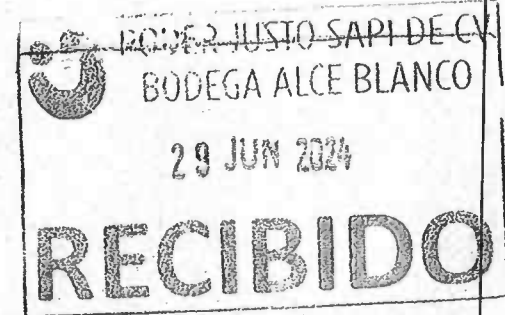 PODER JUSTO SAPI DE CV
BODEGA ALCE BLANCO
29 JUN 2024
RECIBIDO